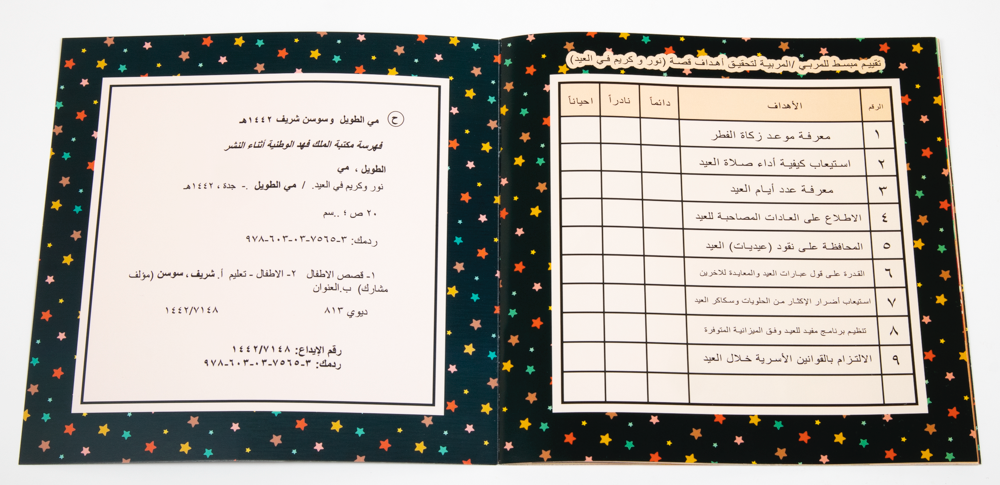 تقييم مبسط للمربي /المربية لتحقيق أهداف قصة (نور و كريم في العيد)
الرقم الأهداف دائماً نادراً احياناً
١ معرفة موعد زكاة الفطر
٢ استيعاب كيفية أداء صلاة العيد
٣ معرفة عدد أيام العيد
٤ الاطلاع على العادات المصاحبة للعيد
٥ المحافظة على نقود (عيديات) العيد
٦ القدرة على قول عبارات العيد والمعايدة للاخرين
٧ استيعاب أضرار الإكثار من الحلويات وسكاكر العيد
٨ تنظيم برنامج مفيد للعيد وفق الميزانية المتوفرة
٩ الالتزام بالقوانين الأسرية خلال العيد
ح مي الطويل وسوسن شريف ١٤٤٢هـ
فهرسة مكتبة الملك فهد الوطنية أثناء النشر
الطويل ، مي
نور وكريم في العيد. / مي الطويل .- جدة ، ١٤٤٢هـ
٢٠ ص ؛ ..سم
ردمك: ٣-٧٥٦٥-٠٣-٦٠٣-٩٧٨
١- قصص الاطفال ٢- الاطفال - تعليم أ. شريف ، سوسن (مؤلف
مشارك) ب.العنوان
ديوي ٨١٣ ١٤٤٢/٧١٤٨
رقم الإيداع: ١٤٤٢/٧١٤٨
ردمك: ٣-٧٥٦٥-٠٣-٦٠٣-٩٧٨